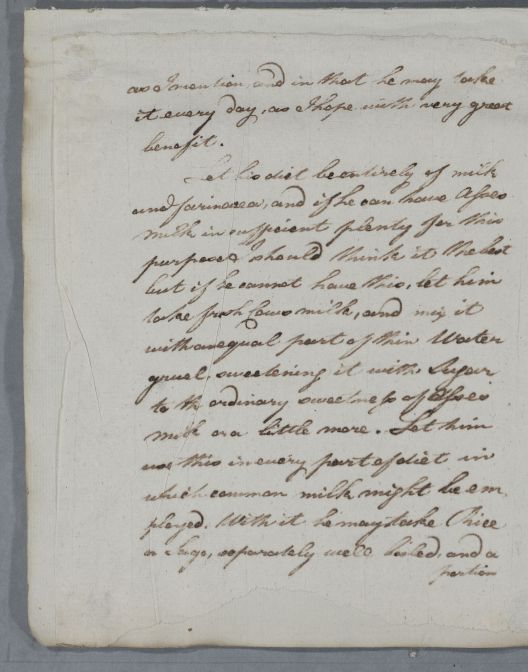 as I mention, and in that he may take
it every day, as I hope with very great
benefit.
Let his diet be entirely of milk
and farinacea, and if he can have Asses
milk in sufficient plenty for this
purpose I should think it the best
but if he cannot have this, let him
take fresh Cows milk, and mix it
with an equal part of thin Water
gruel sweetening it with Sugar
to the ordinary sweetness of Asses
milk or a little more. Let him
use this in every part of diet in
which common milk might be em
ployed. With it he may take Rice
or Sago, separately well boiled, and a
portion